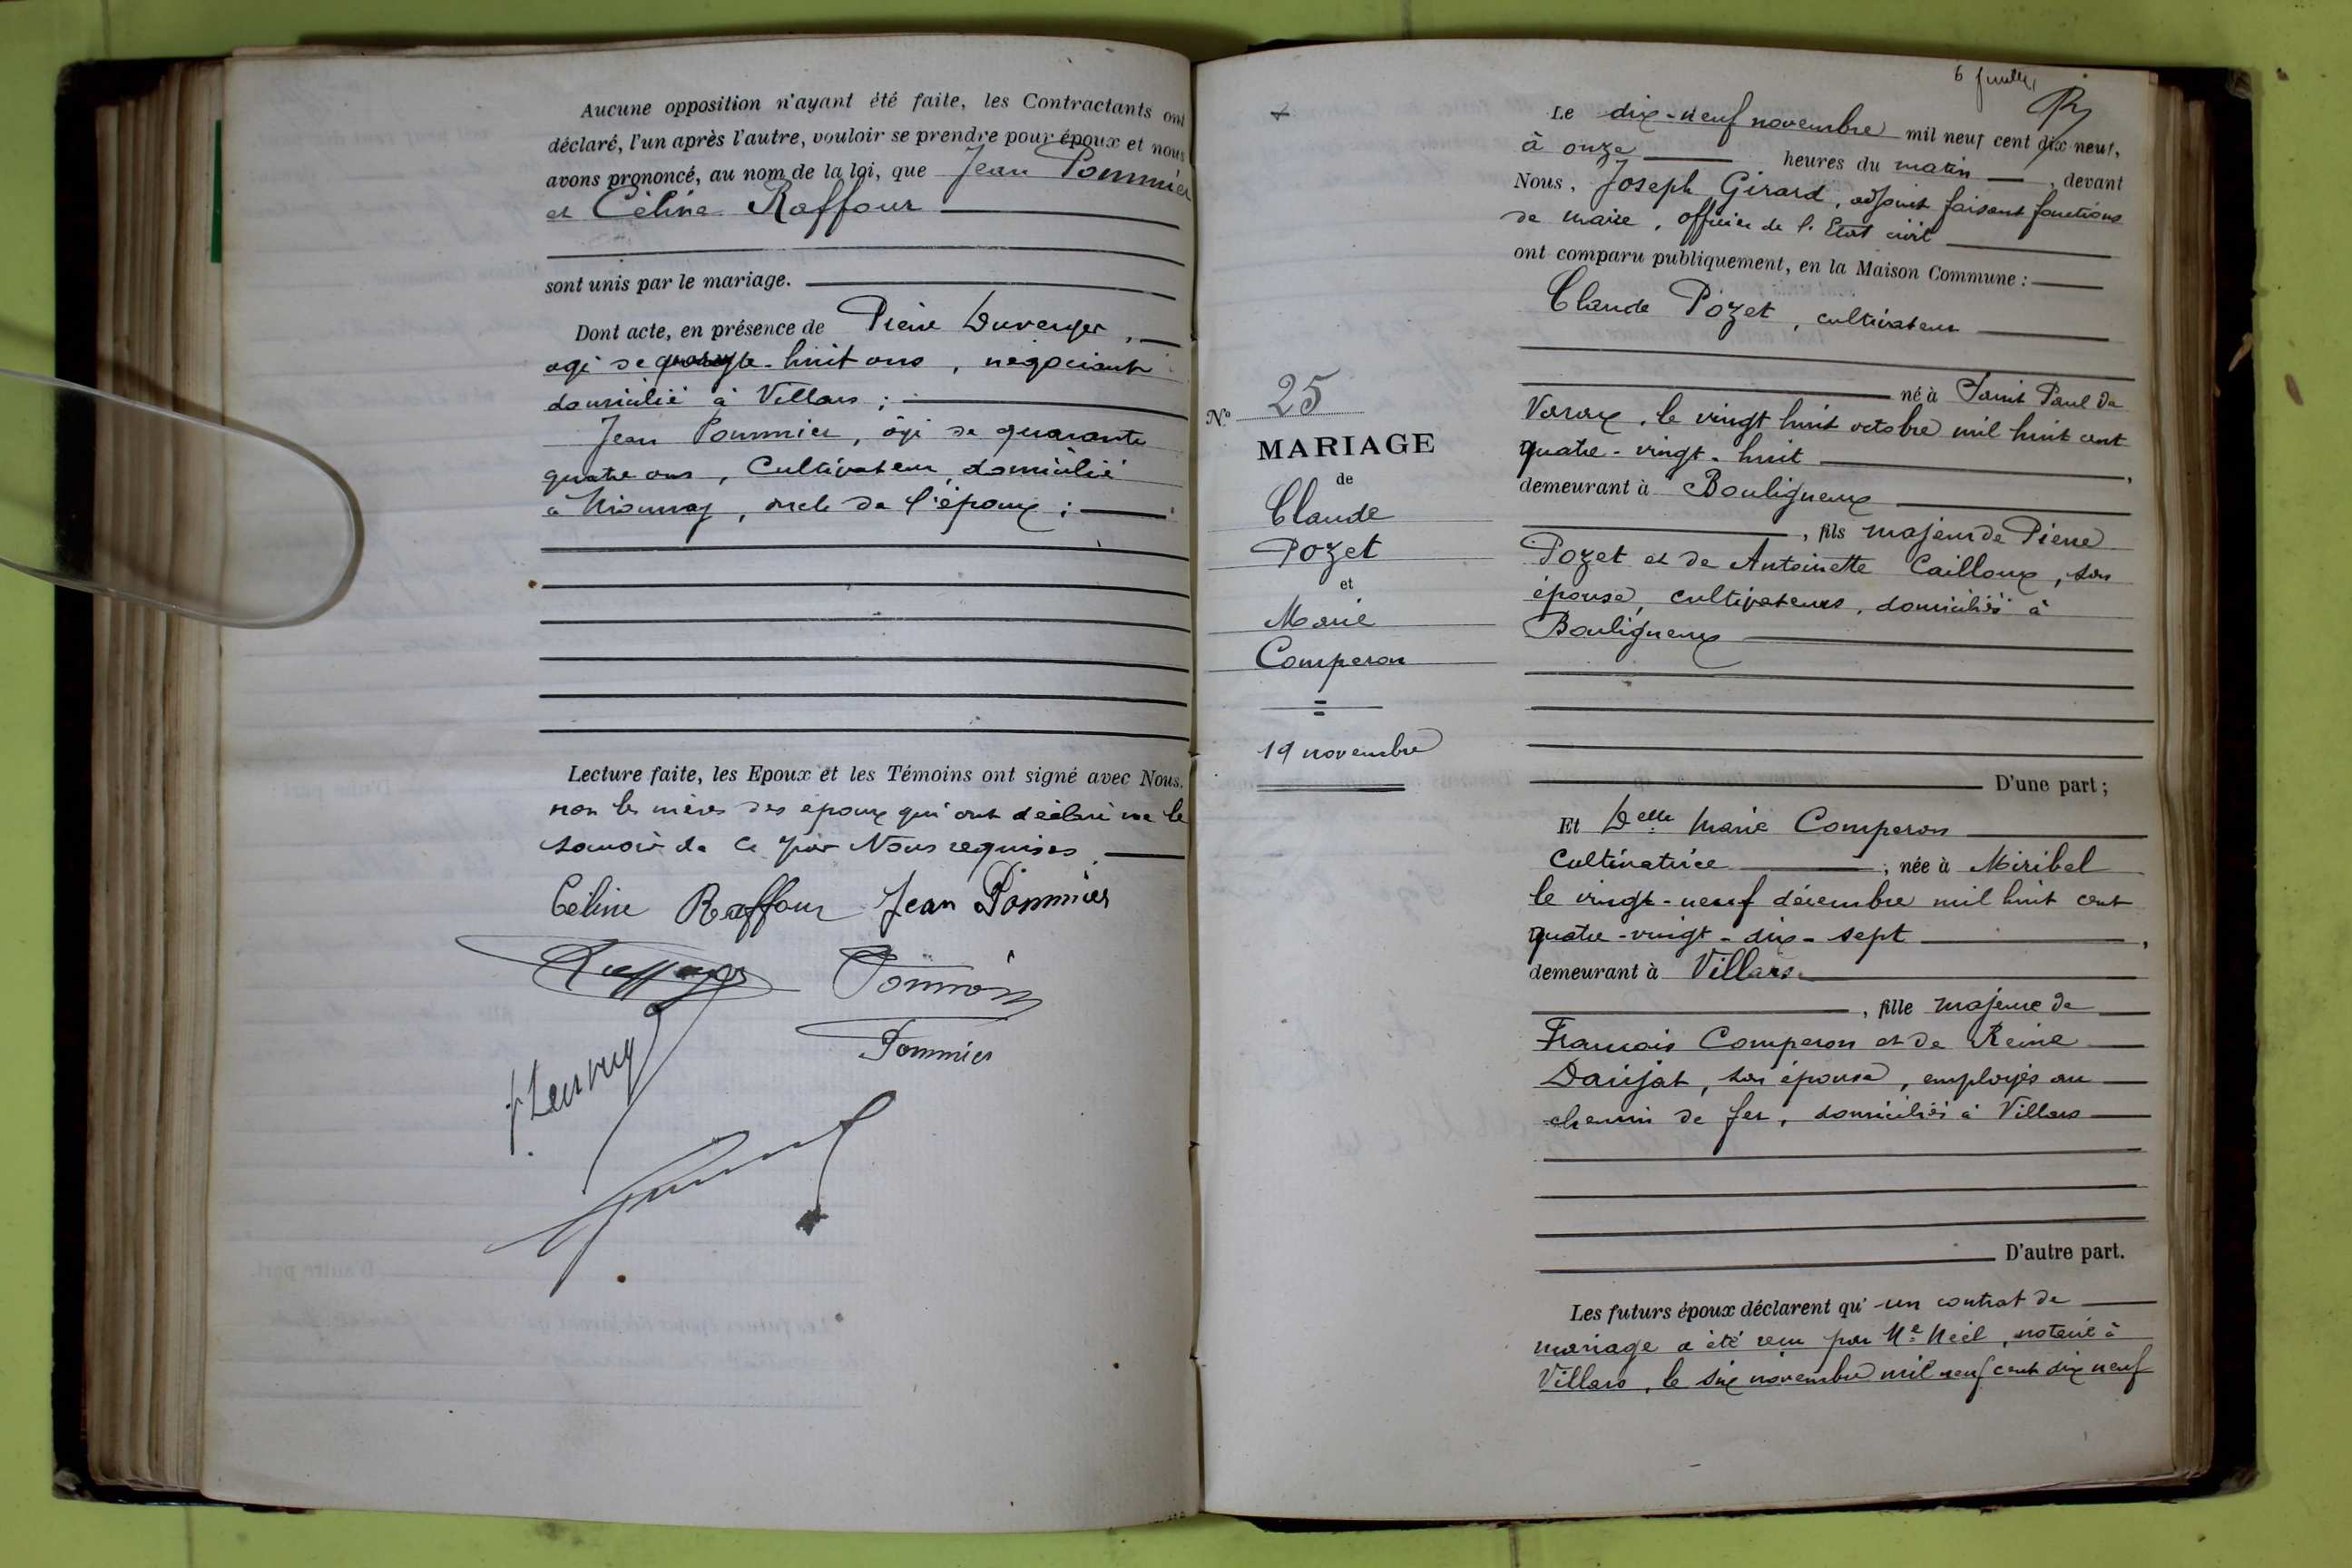 Aucune opposition n'ayant été faite, les Contractants ont
déclaré, l'un après l'autre, vouloir se prendre pour époux et nous
avons prononcé, au nom de la loi, que Jean Pommier
et Céline Raffour
sont unis par le mariage.
Dont acte, en présence de Pierre Duverger,
âgé de huit ans, négociant
domicilié à Villars ;
Jean Pommier, âgé de quarante
quatre ans, Cultivateur, domicilié
à Mionnay, oncle de l'époux ;
Lecture faite, les Epoux et les Témoins ont signé avec Nous.
non les mères des époux qui ont déclaré ne le
savoir de ce par Nous requises.
Céline Raffour Jean Pommier
Pommier
6 feuillet
Le dix-neuf novembre mil neuf cent dix neuf,
à onze heures du matin, devant
Nous, Joseph Girard, adjoint faisant fonctions
de maire, officier de l'Etat civil
ont comparu publiquement, en la Maison Commune :
Claude Pozet, cultivateur
né à Saint Paul de
Varax, le vingt huit octobre mil huit cent
quatre-vingt-huit,
demeurant à Bouligneux
, fils majeur de Pierre
Pozet et de Antoinette Cailloux, son
épouse, cultivateurs, domiciliés à
Bouligneux
D'une part ;
Et Delle Marie Comperon
Cultivatrice ; née à Miribel
le vingt-neuf décembre mil huit cent
quatre-vingt-dix-sept,
demeurant à Villars
, fille majeure de
François Comperon et de Reine
Daujat, son épouse, employés au
chemin de fer, domiciliés à Villars
D'autre part.
Les futurs époux déclarent qu'un contrat de
mariage a été reçu par Me Niel, notaire à
Villars, le six novembre mil neuf cent dix neuf
No 25
MARIAGE
de
Claude
Pozet
et
Marie
Comperon
19 novembre